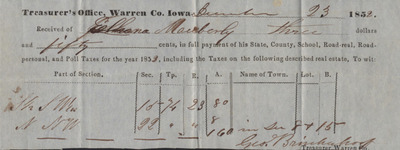 Treasurer's Office, Warren Co. Iowa, December 23 1852.
Received of Moberly three dollars
and fifty cents, in full payment of his State, County, School, Road-real, Road-
personal, and Poll Taxes for the year 1852, including the Taxes on the following described real estate, To wit:
Part of Section. Sec. Tp. R. A. Name of Town. Lot. B.
15 76 23 80
N NW 22 " " 8
160 in sec 8 + 15
Geo.
Treasurer Warren Co.